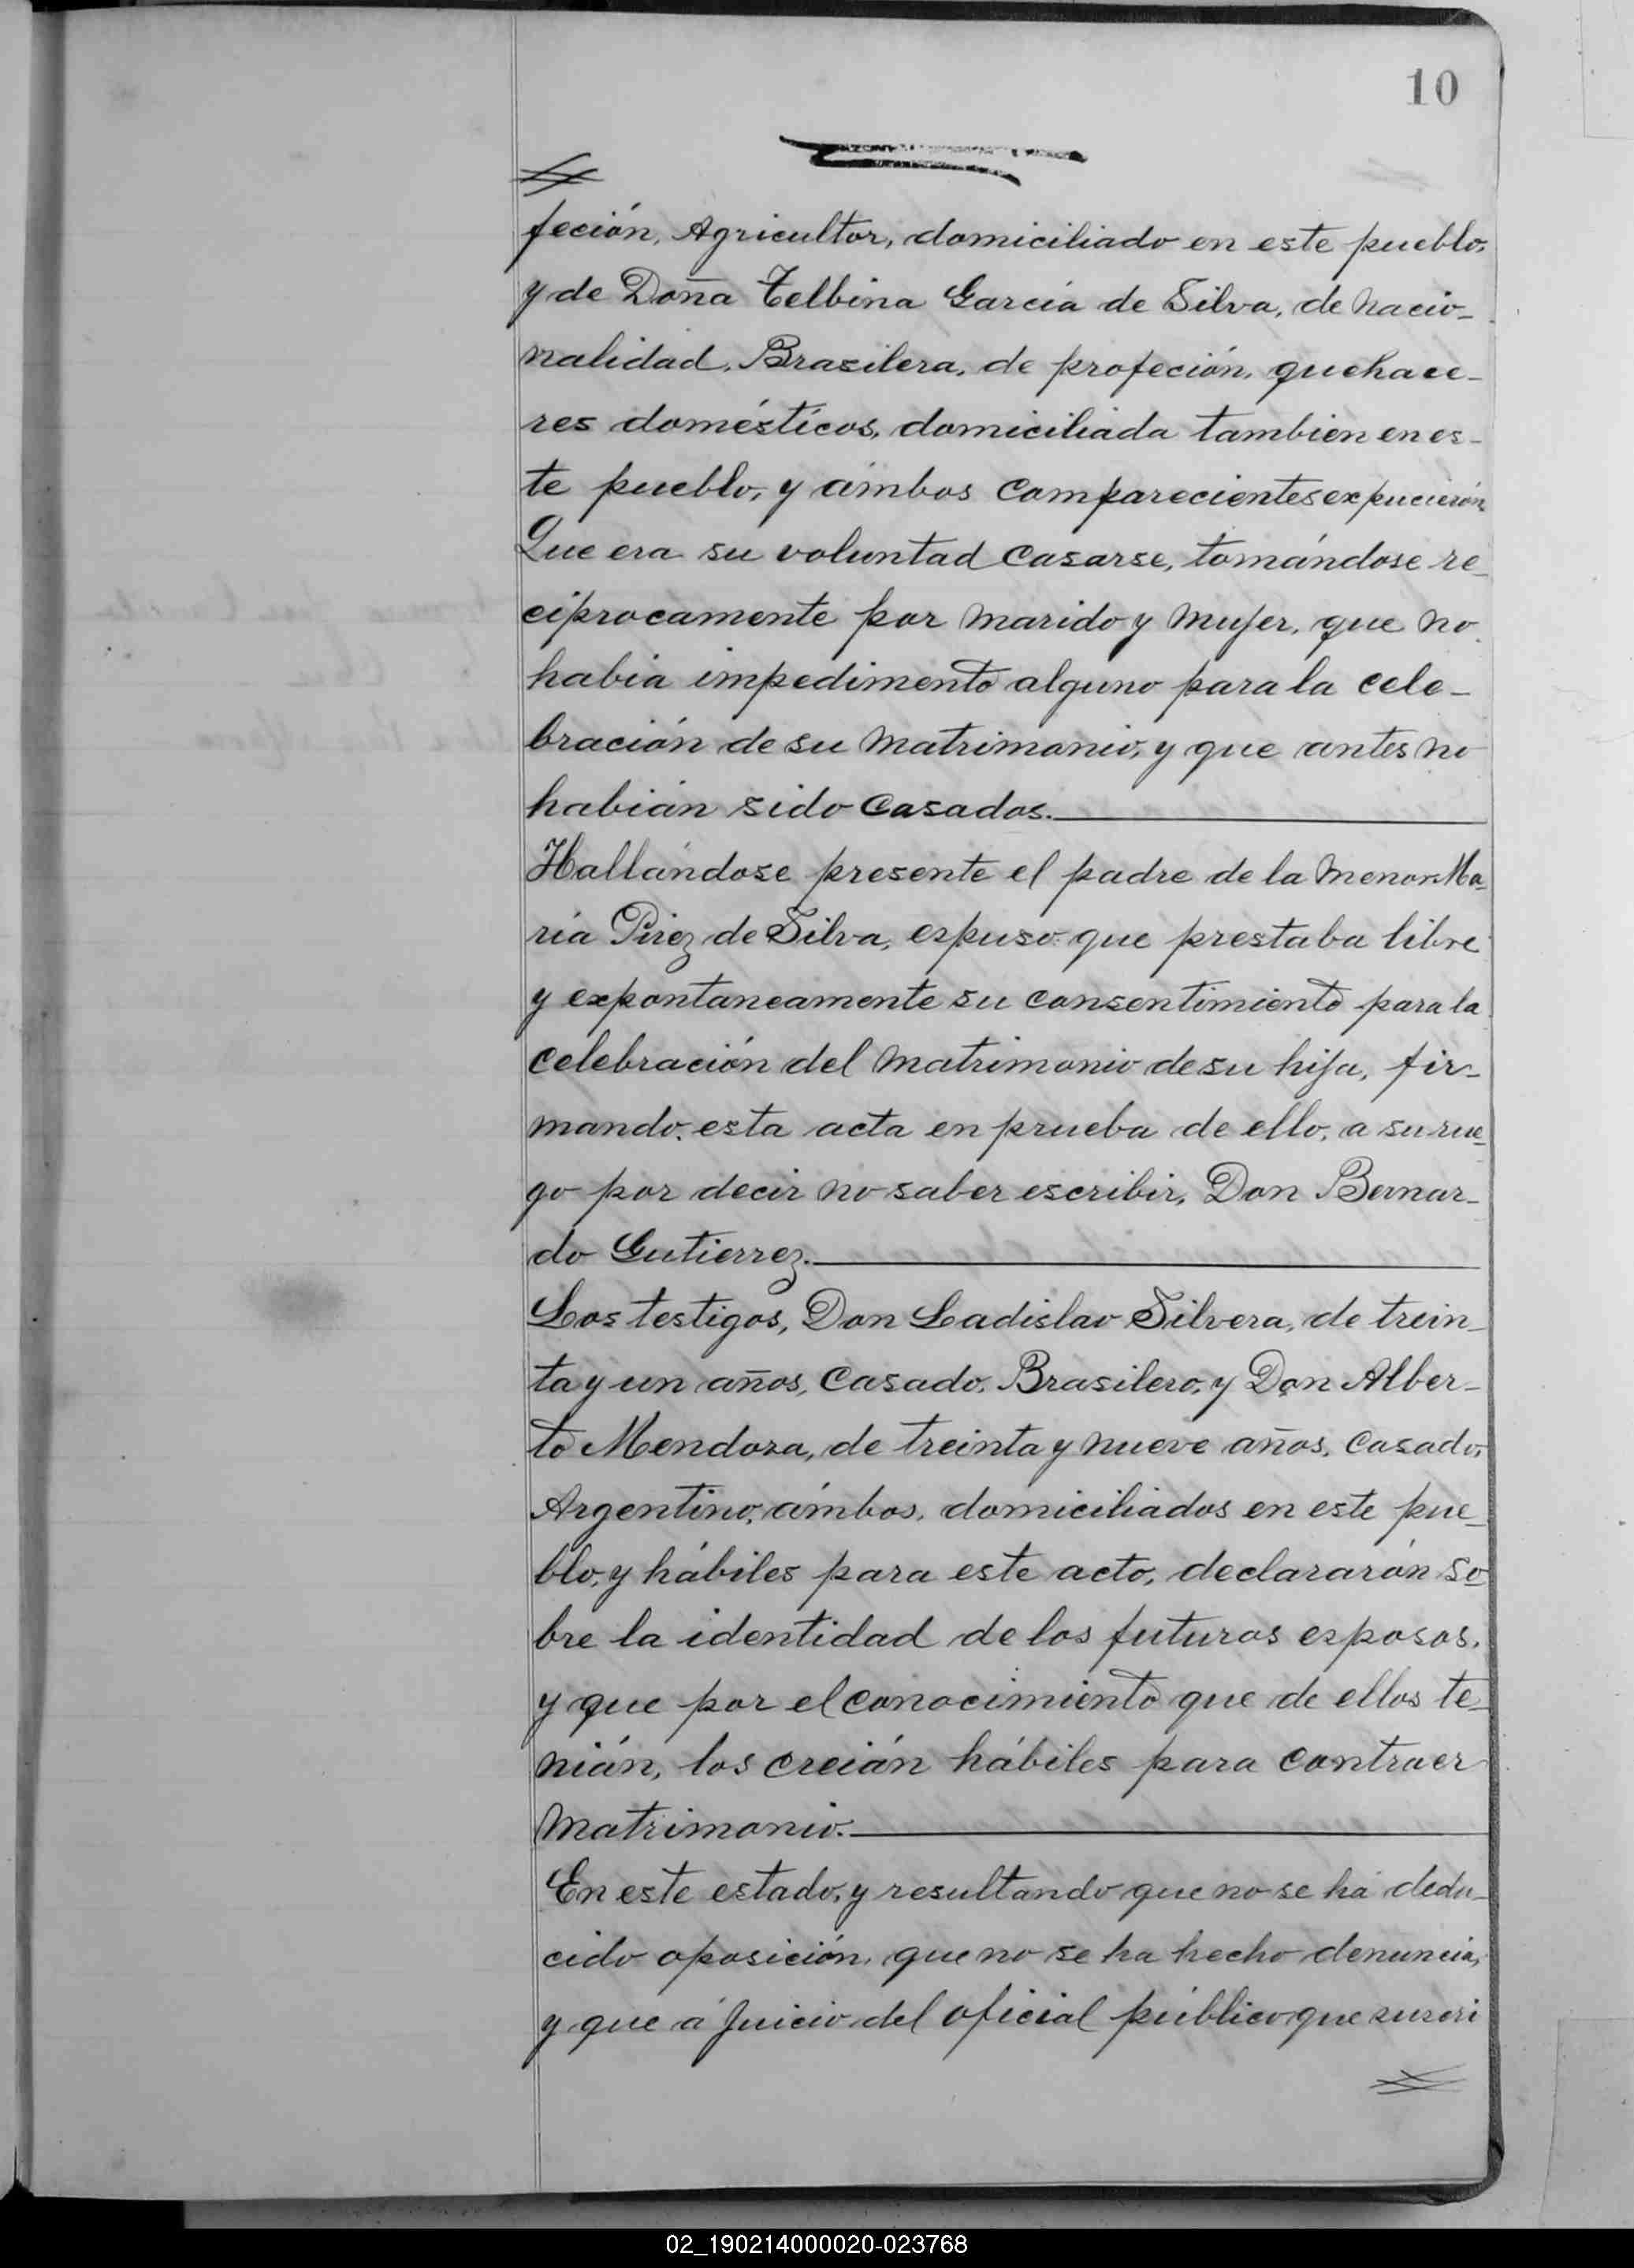 10
feción, Agricultor, domiciliado en este pueblo,
y de Doña Telbina García de Silva, de nacio-
nalidad, Brasilera, de profeción, quehace-
res domésticos, domiciliada tambien en es-
te pueblo, y ámbos comparecientes expucierón
Que era su voluntad casarse, tomándose re-
ciprocamente por marido y mujer, que no
habia impedimento alguno para la cele-
bración de su matrimonio, y que antes no
habián sido casados.
Hallándose presente el padre de la menor Ma-
ria Pirez de Silva, espuso que prestaba libre
y expontaneamente su consentimiento para la
celebración del matrimonio de su hija, fir-
mando esta acta en prueba de ello, a su rue-
go por decir no saber escribir, Don Bernar-
do Gutierrez.
Los testigos, Don Ladislao Silvera, de trein-
ta y un años, casado, Brasilero, y Don Alber-
to Mendoza, de treinta y nueve años, casado,
Argentino, ámbos, domiciliados en este pue-
blo, y hábiles para este acto, declararón so-
bre la identidad de los futuros esposos,
y que por el conocimiento que de ellos te-
nián, los creián hábiles para contraer
matrimonio.
En este estado, y resultando que no se há dedu-
cido oposición, que no se ha hecho denuncia,
y que á juicio del oficial público que suscri
02_190214000020-023768